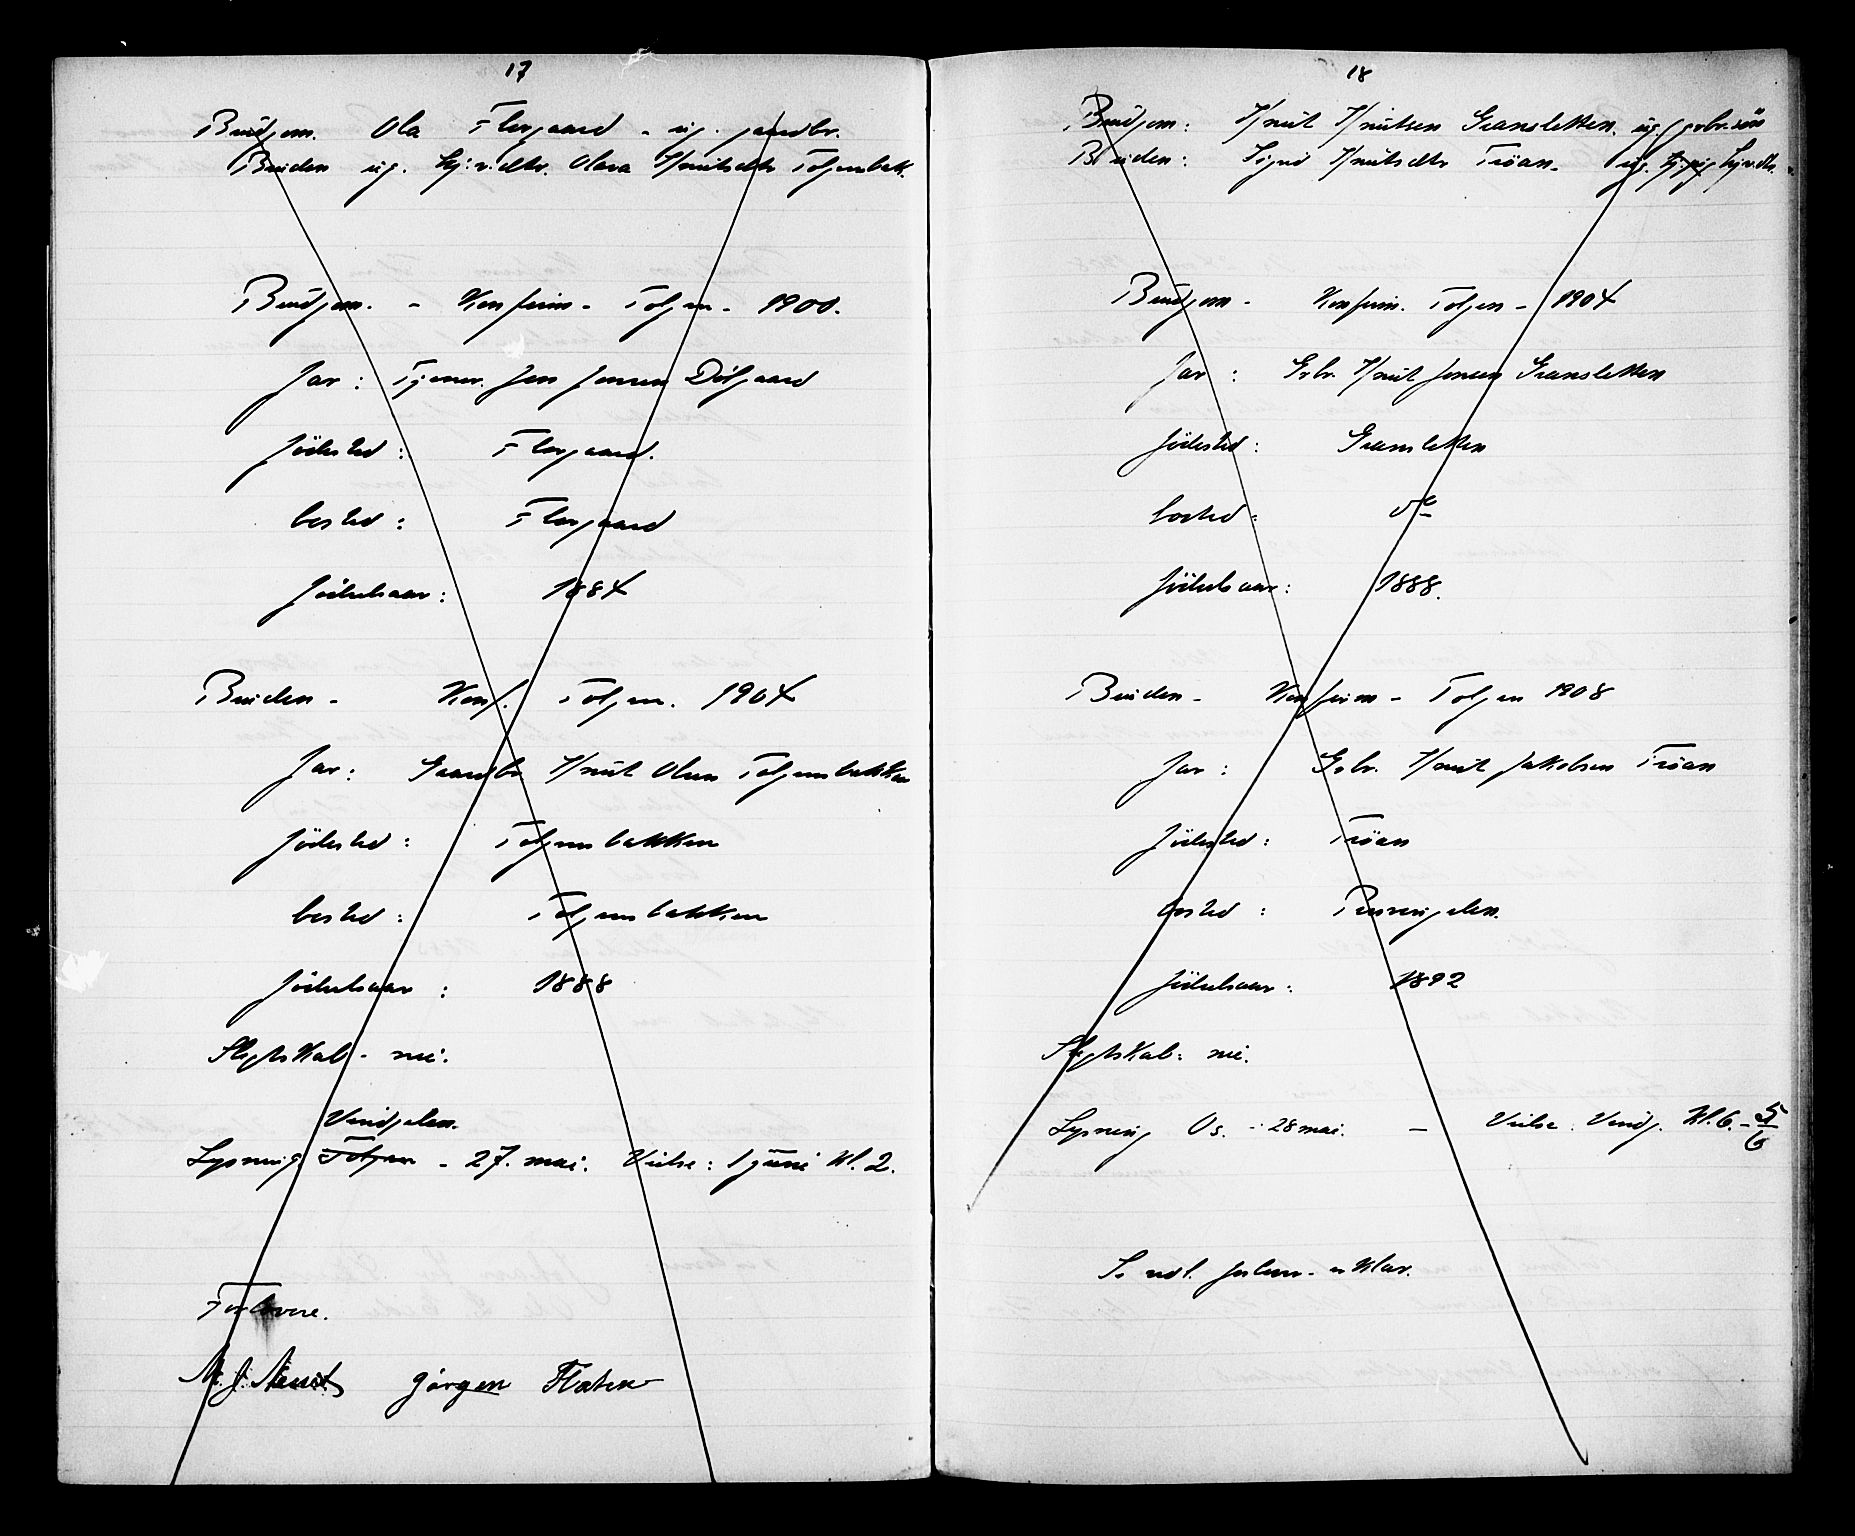 17
Brudgom. Ola Flergaard - ug. gaardbr.
Bruden ug. hj.v. dtr. Olava Knutsdtr Tolgensbak.
Brudgom. - Konfirm - Tolgen - 1900.
far: Tjener. Jon Jonsen Dølgaard
födested: Flergaard.
bosted: Flergaard
födselsaar: 1884
Bruden - Konf. Tolgen. 1904
far: Gaardbr Knut Olsen Tolgensbakken
födested: Tolgensbakken
bosted: Tolgensbakken
födselsaar: 1888
Slegtskab - nei.
Vindgelen.
Lysning Tolgen - 27. mai. Vielse: 1 juni kl. 2.
Forlovere.
Jørgen Flaten
18
Brudgom: Knut Knutsen Gransletten. ug. grbr. sön
Bruden: Sigrid Knutsdtr Tröan - ug. hj. pig hj.v. dtr.
Brudgom - Konfirm. Tolgen - 1904
far: Grbr. Knut Jonsen Gransletten
födested: Gransletten
bosted: do
födselsaar: 1888.
Bruden - Konfirm - Tolgen 1908
far: Grbr. Knut Jakobsen Tröan
födested: Tröan
bosted:
födselsaar: 1892
Slegtskab: nei.
Lysning Os. - 28 mai. - Vielse. Vindg. Kl. 6. - 5/6